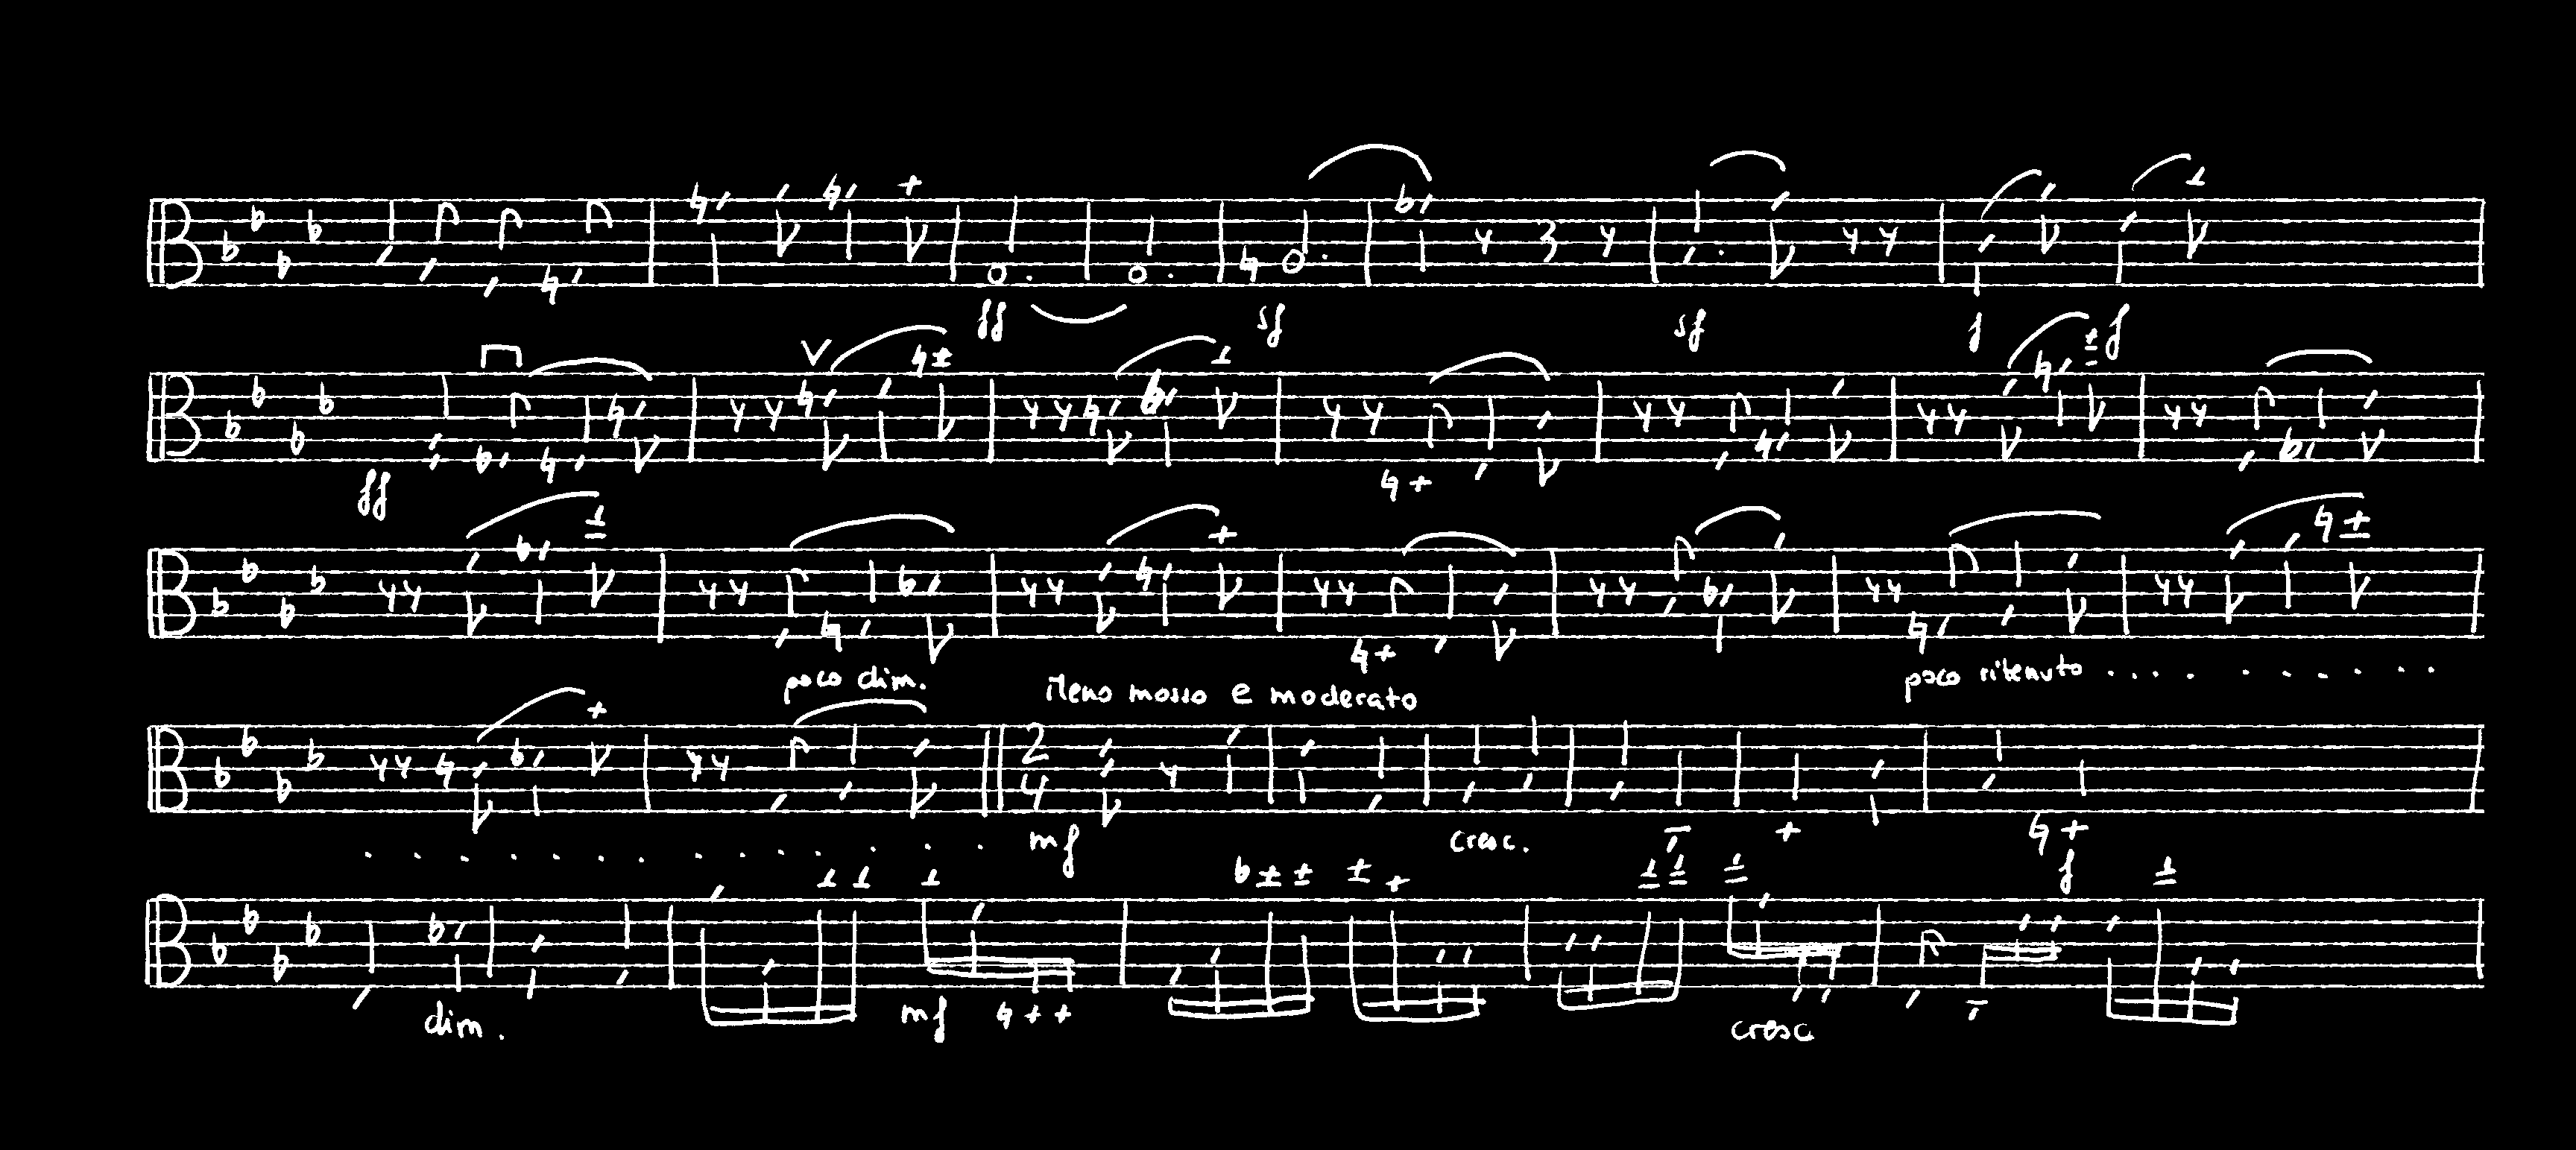 ff sf sf f f
ff
poco dim. Meno mosso e moderato poco ritenuto . . . . . . . . . .
2
4
. . . . . . . . . . . . . . mf cresc. f
dim. mf cresc